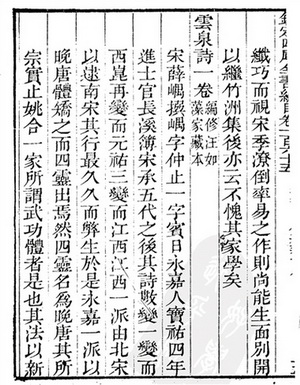 欽定四庫全書總目卷一百六十五
纖巧而視宋季潦倒率易之作則尚能生面別開
以繼竹洲集後亦云不愧其家學矣
雲泉詩一卷 編修汪如藻家藏本
宋薛嵎撰嵎字仲止一字賓日永嘉人寶祐四年
進士官長溪簿宋承五代之後其詩數變一變而
西崑再變而元祐三變而江西江西一派由北宋
以逮南宋其行最久久而弊生於是永嘉一派以
晚唐體矯之而四靈出焉然四靈名為晚唐其所
宗實止姚合一家所謂武功體者是也其法以新